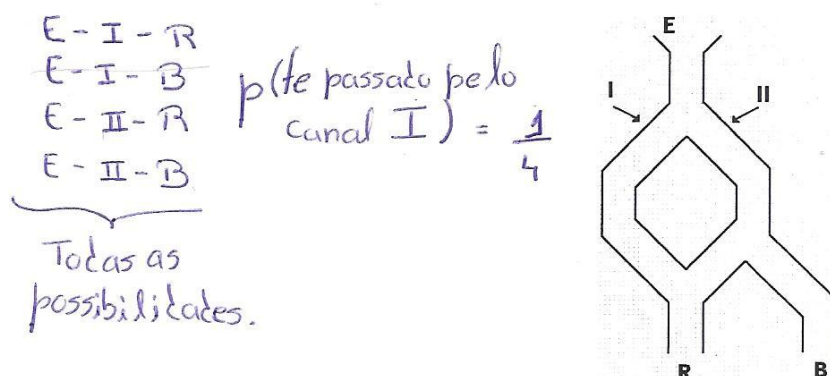 E - I - R
E - I - B
E - II - R
E - II - B
Todas as
possibilidades.
p(te passado pelo
canal I) = 1/4
E
I
II
R
B